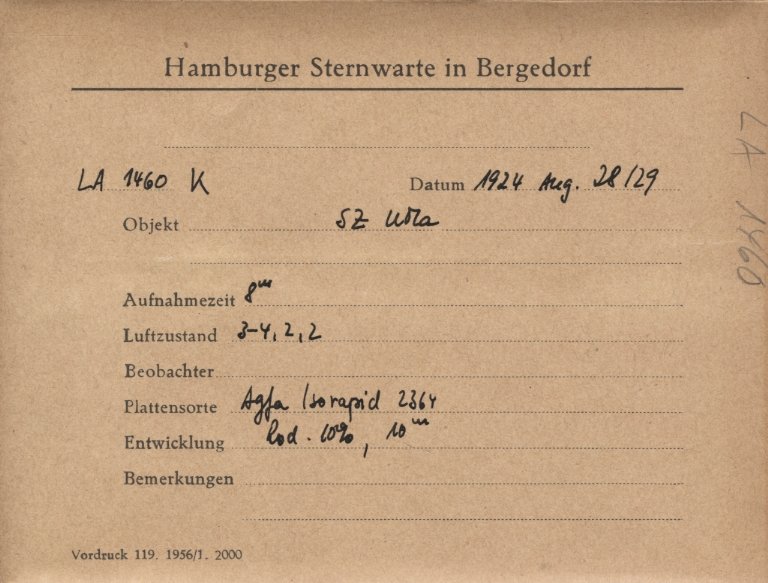 Hamburger Sternwarte in Bergedorf
LA 1460 K Datum 1924 Aug. 28/29
Objekt SZ UMa
Aufnahmezeit 8ᵐ
Luftzustand 3-4, 2, 2
Beobachter
Plattensorte Agfa Isorapid 2364
Entwicklung Rod. 10%, 10ᵐ
Bemerkungen
Vordruck 119. 1956/1. 2000
LA 1460